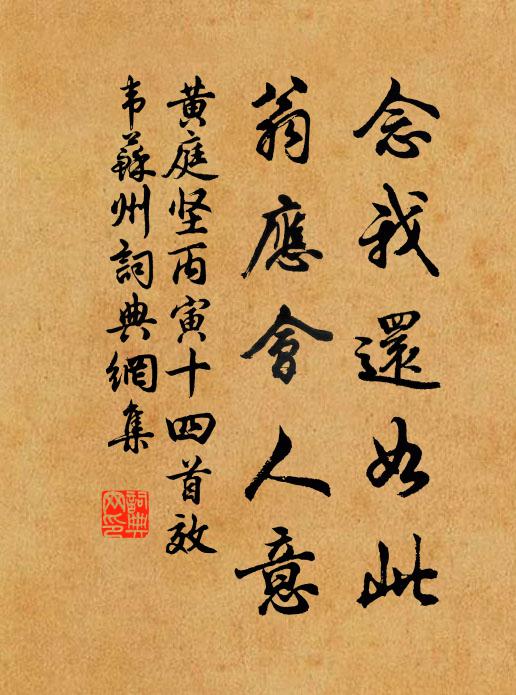 念我還如此
翁應會人意
黄庭坚丙寅十四首效
韦蘇州詞典網集
詞典網印